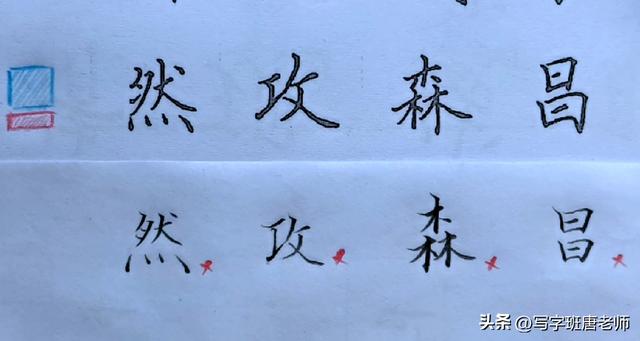 然攻森昌
然攻森昌
头条 @写字班唐老师